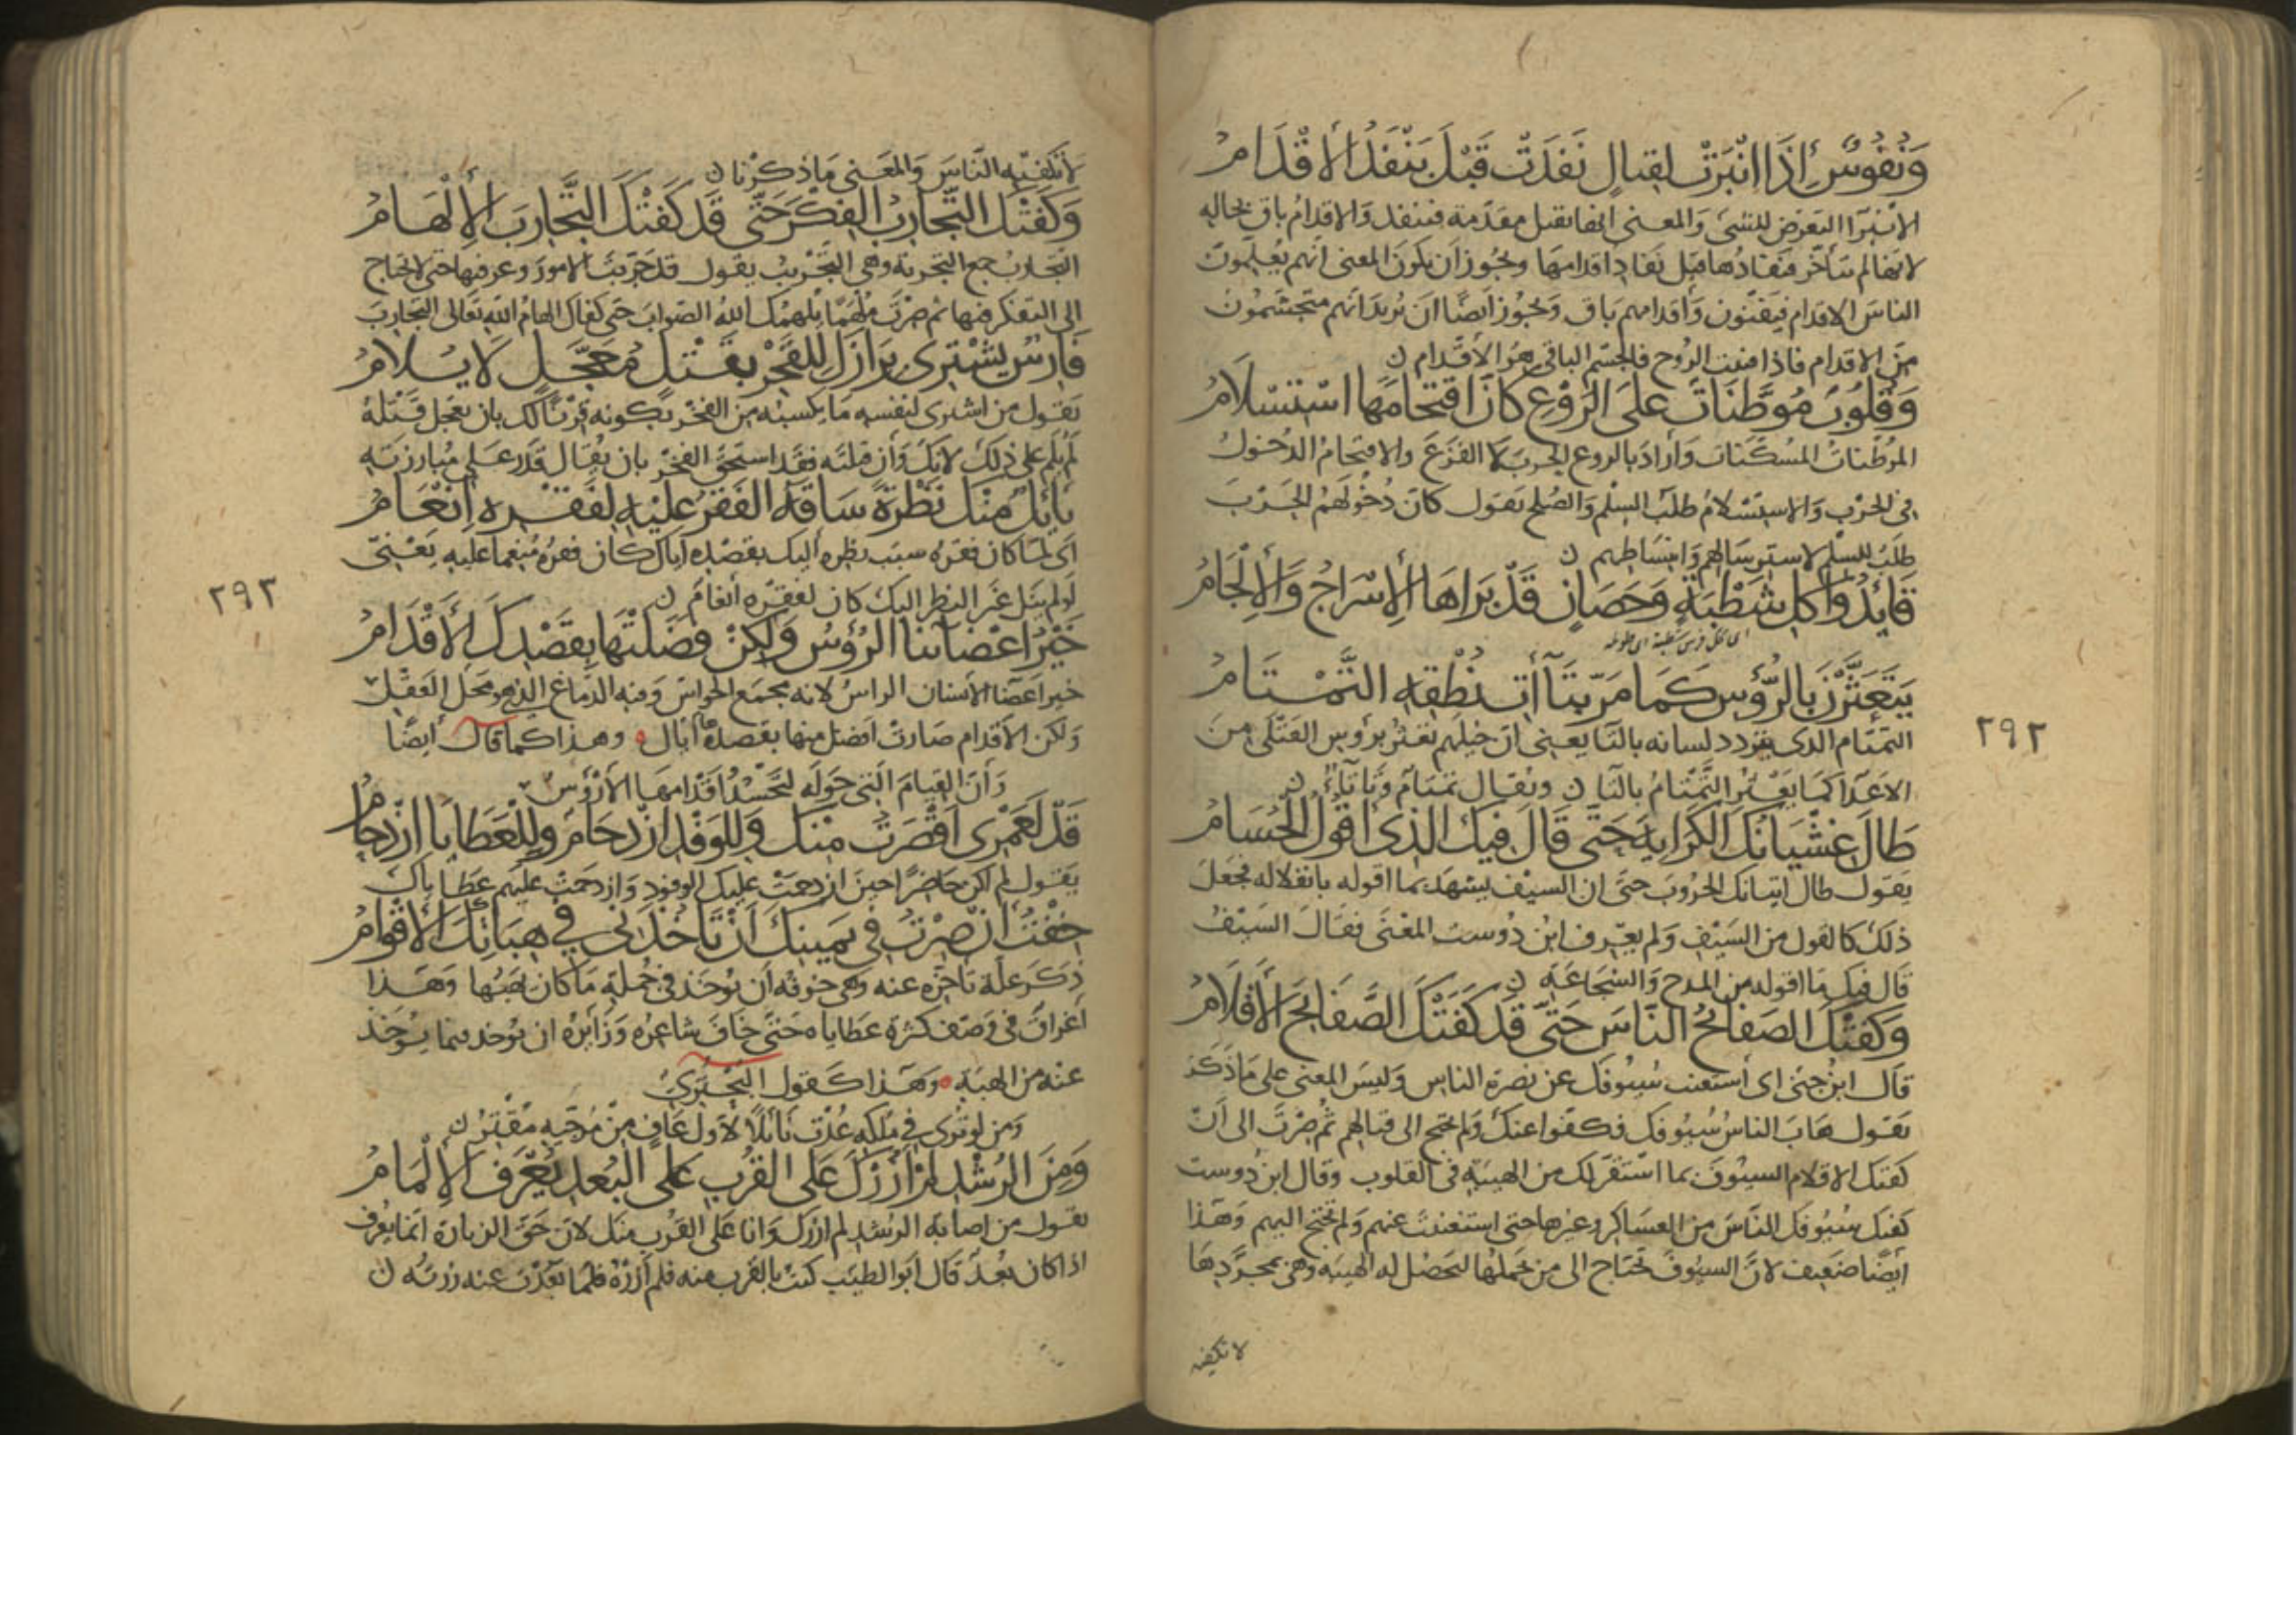 وَنُفُوسٌ إِذَا انْبَرَتْ لِقِتَالٍ نَفَدَتْ قَبْلَ يَنْفَدُ الأقْدَامُ
الانبرا التعرض للشى والمعنى انها تقبل مقدمة فتنفد والاقدام باق بحاله
لانها لم تتأخر فنفادها قبل نفاد اقدامها ويجوز أن يكون المعنى انهم يعلمون
الناس الاقدام فيفنون وأقدامهم باق ويجوز ايضا ان يريد انهم متجشمون
من الاقدام فاذا فنيت الروح فالجسم الباقى هو الاقدام ن
وَقُلُوبٌ مُوَطَّنَاتٌ عَلَى الرَّوْعِ كَانَ اقْتِحَامَهَا اسْتِسْلَامُ
الموطنات المسكنات وأراد بالروع الحرب لا الفزع والاقتحام الدخول
فى الحرب والاستسلام طلب السلم والصلح يقول كان دخولهم الحرب
طلب للسلم لاسترسالهم وانبساطهم ن
قَائِدُوا كُلِّ شَطْبَةٍ وَحَصَانٍ قَدْ بَرَاهَا الإِسْرَاجُ وَالإِلْجَامُ
اى كل فرس شطبة اى طويلة
يَتَعَثَّرْنَ بِالرُّؤُسِ كَمَا مَرَّ بِتَاآتِ نُطْقِهِ التَّمْتَامُ
التمتام الذى يتردد لسانه بالتا يعنى ان خيلهم تعثر برؤس القتلى من
الاعدا كما يعثر التمتام بالتا ن ويقال تمتام وتأتاء ن
طَالَ غَشْيَانُكَ الكَرَايِهَ حَتَّى قَالَ فِيكَ الَّذِى أَقُولُ الْحُسَامُ
يقول طال اتيانك الحروب حتى ان السيف يشهد بما اقوله بانفلاله فجعل
ذلك كالقول من السيف ولم يعرف ابن دوست المعنى فقال السيف
قال فيك ما اقوله من المدح والشجاعة ن
وَكَفَتْكَ الصَّفَايِحُ النَّاسَ حَتَّى قَدْ كَفَتْكَ الصَّفَايِحَ الأَقْلَامُ
قال ابن جنى اى استغنت سيوفك عن نصرة الناس وليس المعنى على ما ذكر
يقول هاب الناس سيوفك فكفوا عنك ولم تحتج الى قتالهم ثم صرت الى أن
كفتك الاقلام السيوف بما استقر لك من الهيبة فى القلوب وقال ابن دوست
كفتك سيوفك الناس من العساكر وغيرها حتى استغنيت عنهم ولم تحتج اليهم وهذا
أيضا ضعيف لان السيوف تحتاج الى من يحملها لتحصل له الهيبة وهى بمجردها
لا تكفيه
٢٩٢
لا تكفيه الناس والمعنى ما ذكرنا ن
وَكَفَتْكَ التَّجَارِبُ الْفِكْرَ حَتَّى قَدْ كَفَتْكَ التَّجَارِبَ الإِلْهَامُ
التجارب جمع التجربة وهى التجريب يقول قد جربت الامور وعرفتها حتى لا تحتاج
الى التفكر فيها ثم صرت ملهما يلهمك الله الصواب حتى كفاك الهام الله تعالى التجارب
فَارِسٌ يَشْتَرِى بِرَازَكَ لِلْفَخْرِ بِقَتْلٍ مُعَجَّلٍ لَا يُلَامُ
يقول من اشترى لنفسه ما يكسبه من الفخر بكونه قرنا لك بان تعجل قتله
لم يلم على ذلك لانك وأن قتلته فقد استحق الفخر بان يقال قدر على مبارزته
نَائِلٌ مِنْكَ نَظْرَةً سَاقَهُ الفَقْرُ عَلَيْهِ لِفَقْرِهِ إِنْعَامُ
اى لما كان فقره سبب نظره اليك بقصده اياك كان فقره منعما عليه يعنى
لو لم ينل غير النظر اليك كان لفقره أنعام ن
خَيْرُ أَعْضَائِنَا الرُّؤُسُ وَلٰكِنْ فَضَلَتْهَا بِقَصْدِكَ الأَقْدَامُ
خير اعضا الانسان الراس لانه مجمع الحواس وفيه الدماغ الذى هو محل العقل
ولكن الاقدام صارت افضل منها بقصدها اياك وهذا كما قال أيضا
وَأَنَّ القِيَامَ الَّتِى حَوْلَهُ لَتَحْسُدُ أَقْدَامَهَا الأَرْؤُسُ
قَدْ لَعَمْرِى أَقْصَرْتُ عَنْكَ وَلِلْوَفْدِ ازْدِحَامٌ وَلِلْعَطَايَا ازْدِحَامُ
يقول لم اكن حاضرا حين ازدحمت عليك الوفود وازدحمت عليهم عطاياك
خِفْتُ انْ صِرْتُ فِى يَمِينِكَ أَنْ تَأْخُذَنِى فِى هِبَاتِكَ الأَقْوَامُ
ذكر علة تاخره عنه وهى خوفه أن يوخذ فى جملة ما كان يهبها وهذا
أغراق فى وصف كثرة عطاياه حتى خاف شاعره وزايره ان يوخذ فيما يوخذ
عنه من الهبة وهذا كقول البحترى
وَمَنْ لَوْ تُرَى فِى مُلْكِهِ عُدْتَ نَائِلًا لأَوَّلِ عَافٍ مِنْ مُرَجِّيهِ مُقْتِرِ ن
وَمِنَ الرُّشْدِ لَمْ أَزُرْكَ عَلَى القُرْبِ عَلَى البُعْدِ يُعْرَفُ الإِلْمَامُ
يقول من اصابة الرشد لم ازرك وانا على القرب منك لان حق الزيارة انما يعرف
اذا كان بعد قال أبو الطيب كنت بالقرب منه فلم أزره فلما بعدت عنه زرته ن
٢٩٣